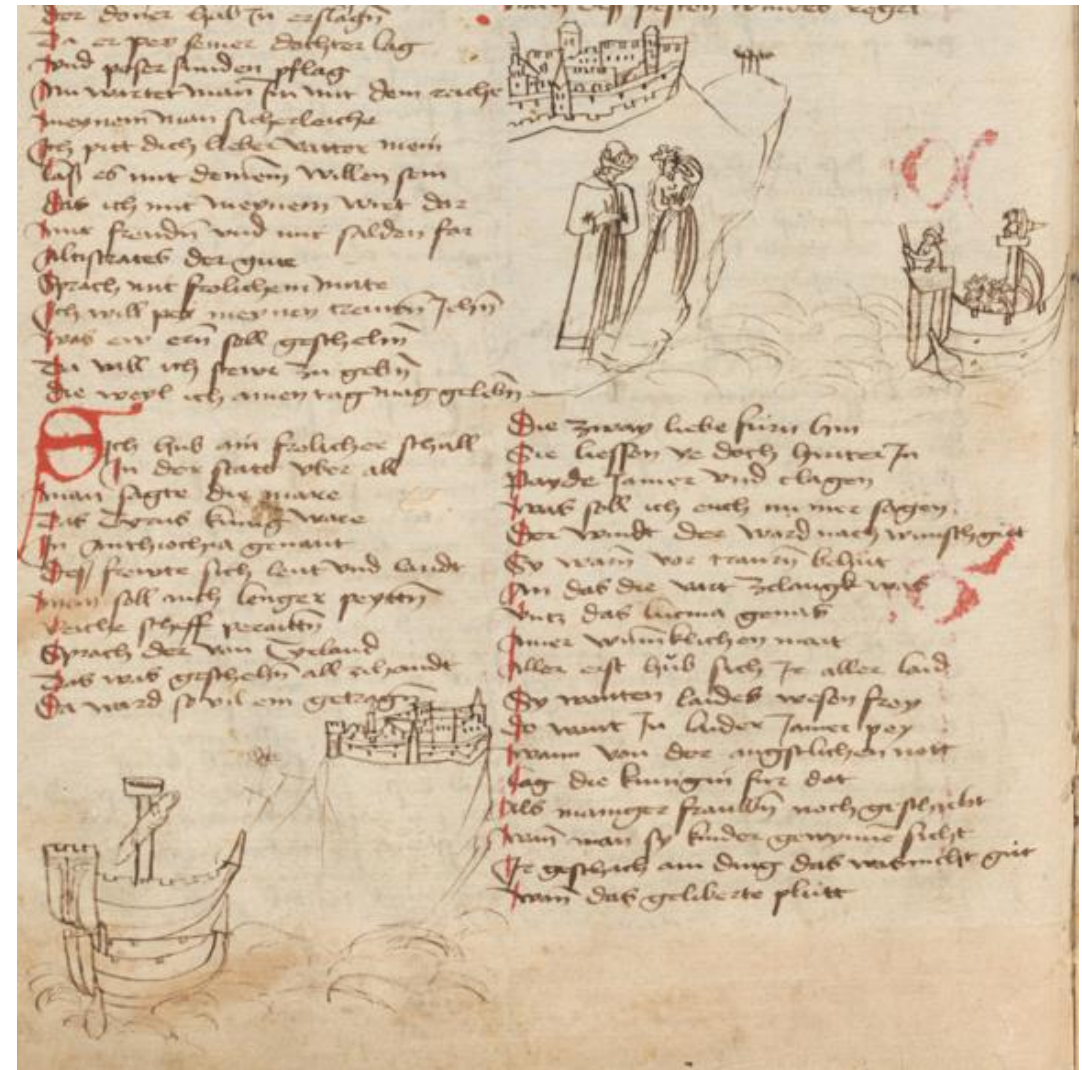 Der doner hab In erslagn̄
Da er pey seiner dochter lag
Vnd poser sunden pflag
Nu wartet man Im mit dem reiche
Meynem man sicherleiche
Ich pitt dich lieber vatter mein
Laß es mit deinem willen sein
Das ich mit meynem wirt dar
Mit frewdn̄ vnd mit salden far
Altistrates der gute
Sprach mit frolichem mute
Ich will pey meynen trewen Iehn̄
Was ew ern̄ soll geschehn̄
Da will ich stewr zu gebn̄
Die weyl ich ainen tag mag gelebn̄
Sich hub ain frolicher schall
In der statt vber all
Man sagte die mare
Das Tyrus kunig ware
In Anthiochia genant
Des frewte sich leut vnd landt
Man soll nich lenger peyttn̄
Reiche scheff peraittn̄
Sprach der van Tyrland
Das was geschehn̄ all zehandt
Da ward so vil ein getragn̄
Nach des pesten windes regel
Die zway liebe furn hin
Sie liessen ye doch hinter In
Payde Jamer vnd clagen
Was soll ich euch nu mer sagen
Der windt der ward nach wunsch gut
Sy warn̄ vor trawrn̄ behut
An das die vart zelangk was
Vntz das lucina genas
Ainer wunniklichen mait
Aller erst hub sich Ir aller laid
Sy wonten laides wesen frey
Do wont In laider Jamer pey
Wann von der angstlichen nott
Lag die kunigin fur dot
Als maniger frawen noch geschicht
Wan̄ man sy kinder gewynne sicht
Ir geschach ain ding das was nicht gut
Wan̄ das geliberte plutt